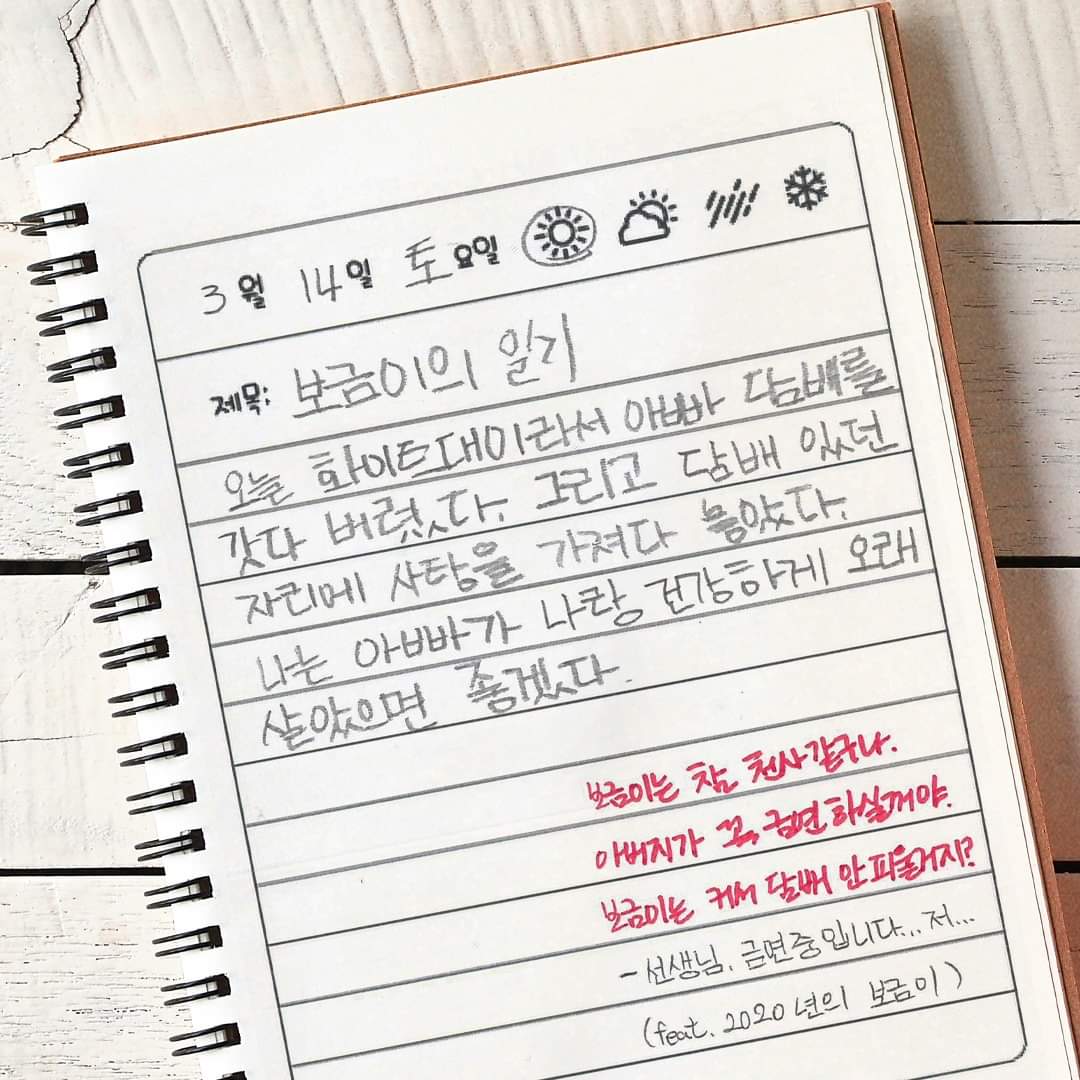 3월 14일 토요일
제목: 보금이의 일기
오늘 화이트데이라서 아빠 담배를
갖다 버렸다. 그리고 담배 있던
자리에 사탕을 가져다 놓았다.
나는 아빠가 나랑 건강하게 오래
살았으면 좋겠다.
보금이는 참 천사같구나.
아버지가 꼭 금연하실꺼야.
보금이는 커서 담배 안피울거지?
- 선생님, 금연중입니다... 저...
(feat. 2020년의 보금이)